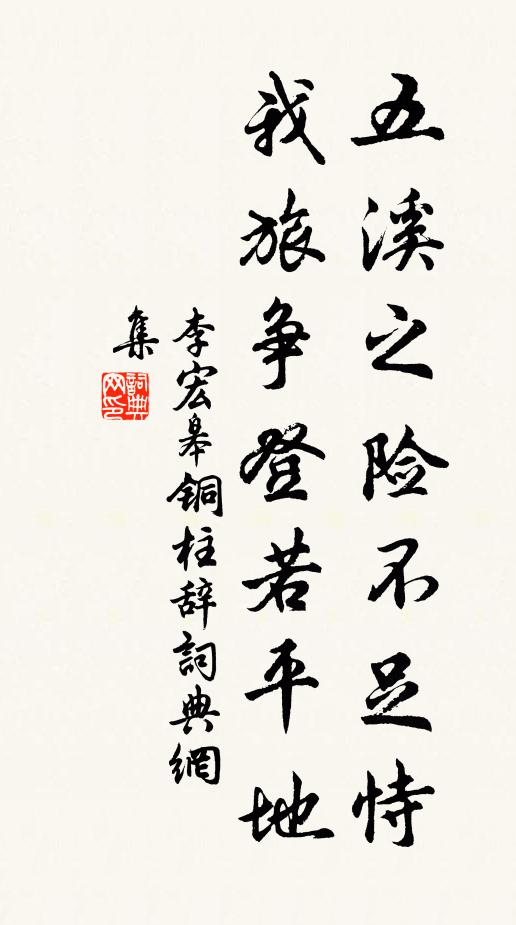 五溪之险不足恃
我旅争登若平地
李宏皋铜柱辞詞典網
集
詞典
网印